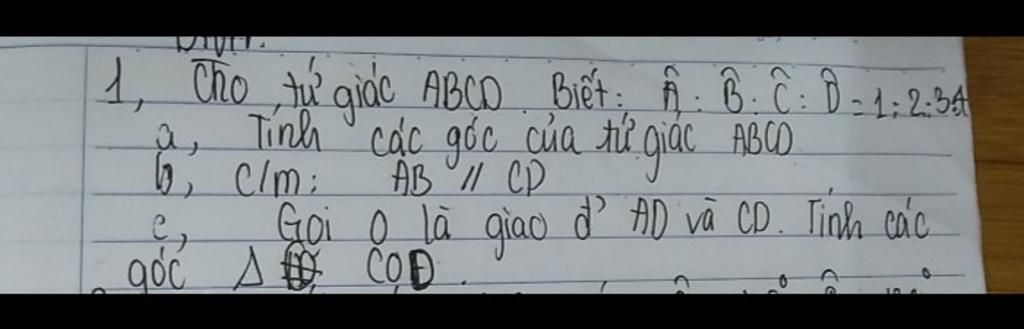 1, Cho tứ giác ABCD. Biết: Â : B̂ : Ĉ : D̂ = 1 : 2 : 3 : 4
a, Tính các góc của tứ giác ABCD
b, C/m: AB // CD
c, Gọi O là giao đ' AD và CD. Tính các
góc Δ COD.